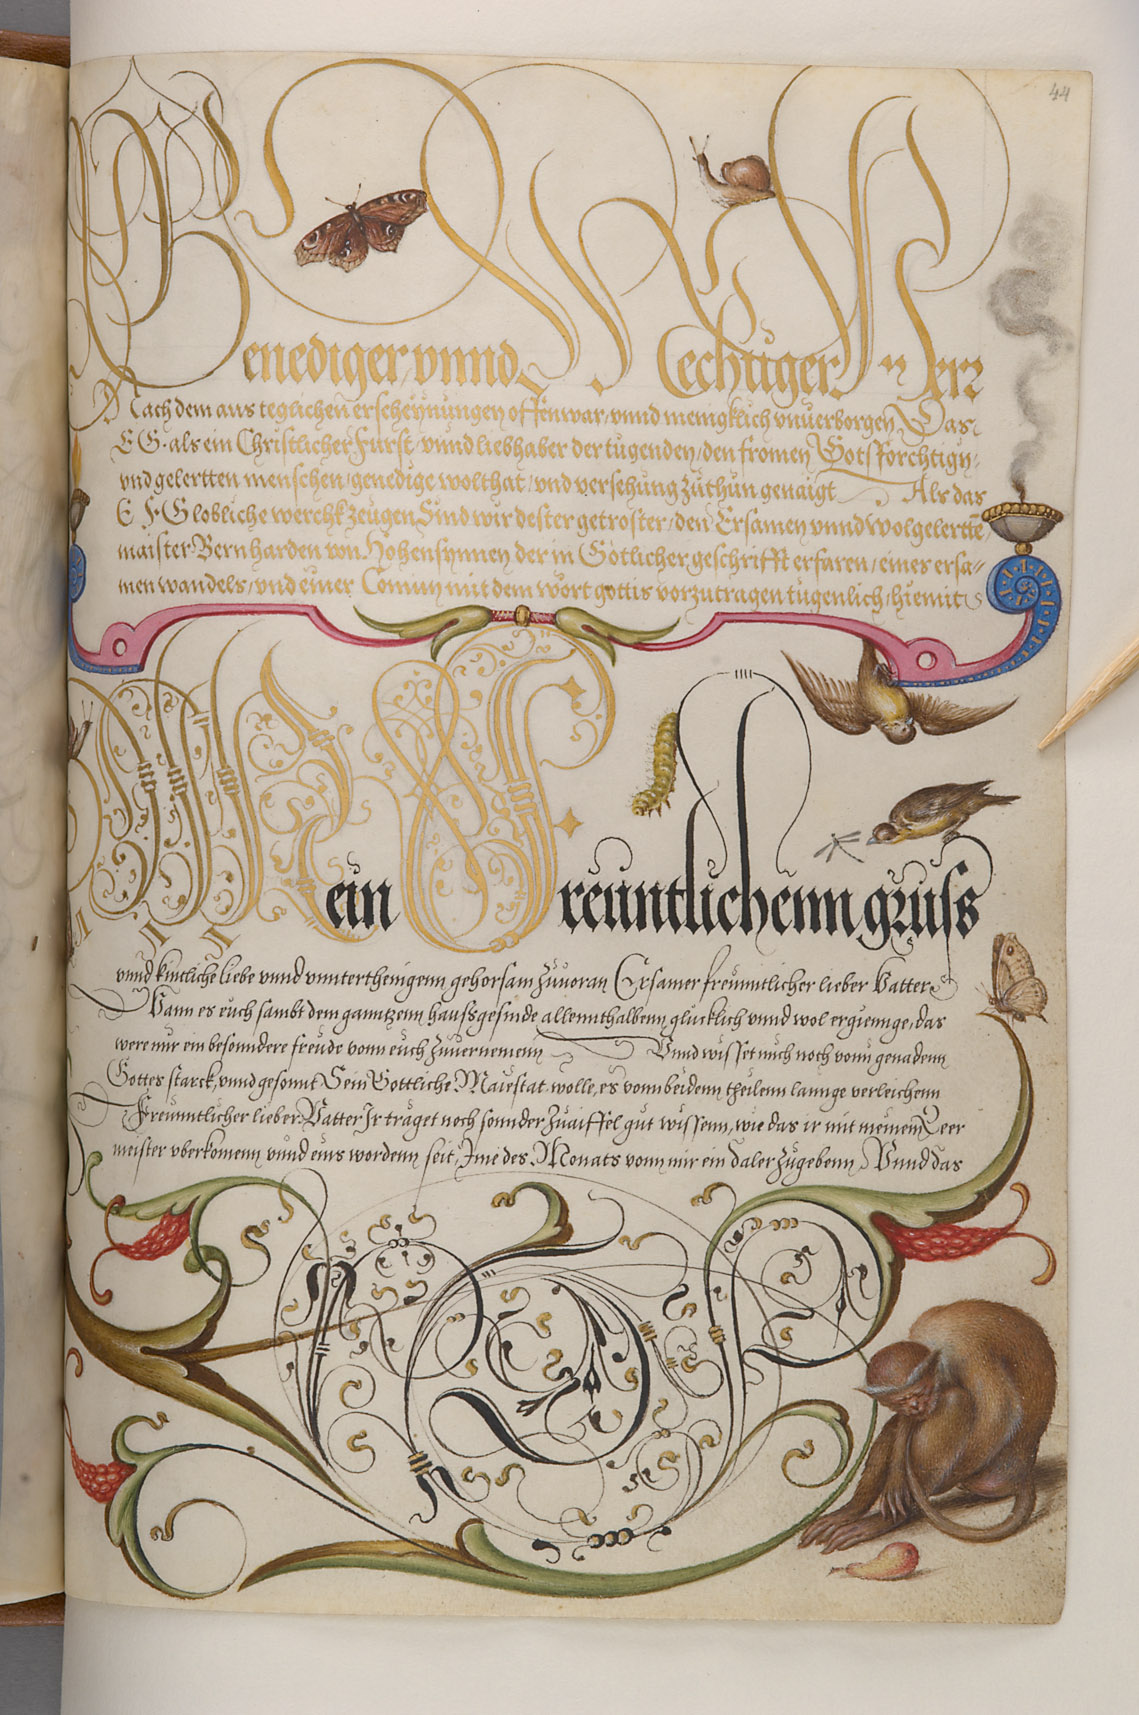 44
Genediger, vnnd Mechtiger Herr
Nach dem aus teglichen erscheÿnungen offenwar, vnnd menigklich vnuerborgen, Das
E G. als ein Christlicher Furst, vnnd liebhaber der tugenden, den fromen Gotsforchtign,
vnd gelertten menschen, genedige wolthat, vnd versehung zuthun genaigt Als das
E F G lobliche werchk zeugen Sind wir dester getroster, den Ersamen vnnd wolgelertē,
maister Bernharden von Hohensynnen der in Gotlicher geschrifft erfaren, eines ersa-
men wandels, vnd einer Comun mit dem wort gottis vorzutragen tugenlich, hiemit
Mein Freuntlichenn gruss
vnnd kintliche liebe vnnd vnnterthenigenn gehorsam zuuoran Ersamer freunntlicher lieber Vatter
Wann es euch sambt dem ganntzenn haussgesinde allennthalbenn glucklich vnnd wol ergiennge, das
were mir ein besonndere freude vonn euch zuuernemenn Vnnd wisset mich noch vonn genadenn
Gottes starck, vnnd gesonnt Sein Gottliche Maiestat wolle, es vonn beidenn theilenn lannge verleichenn
Freunntlicher lieber Vatter Ir traget noch sonnder zuaiffel gut wissenn, wie das ir mit meinem Leer
meister vberkomenn vnnd eins wordenn seit, Ime des Monats vonn mir ein daler zugebenn Vnnd das